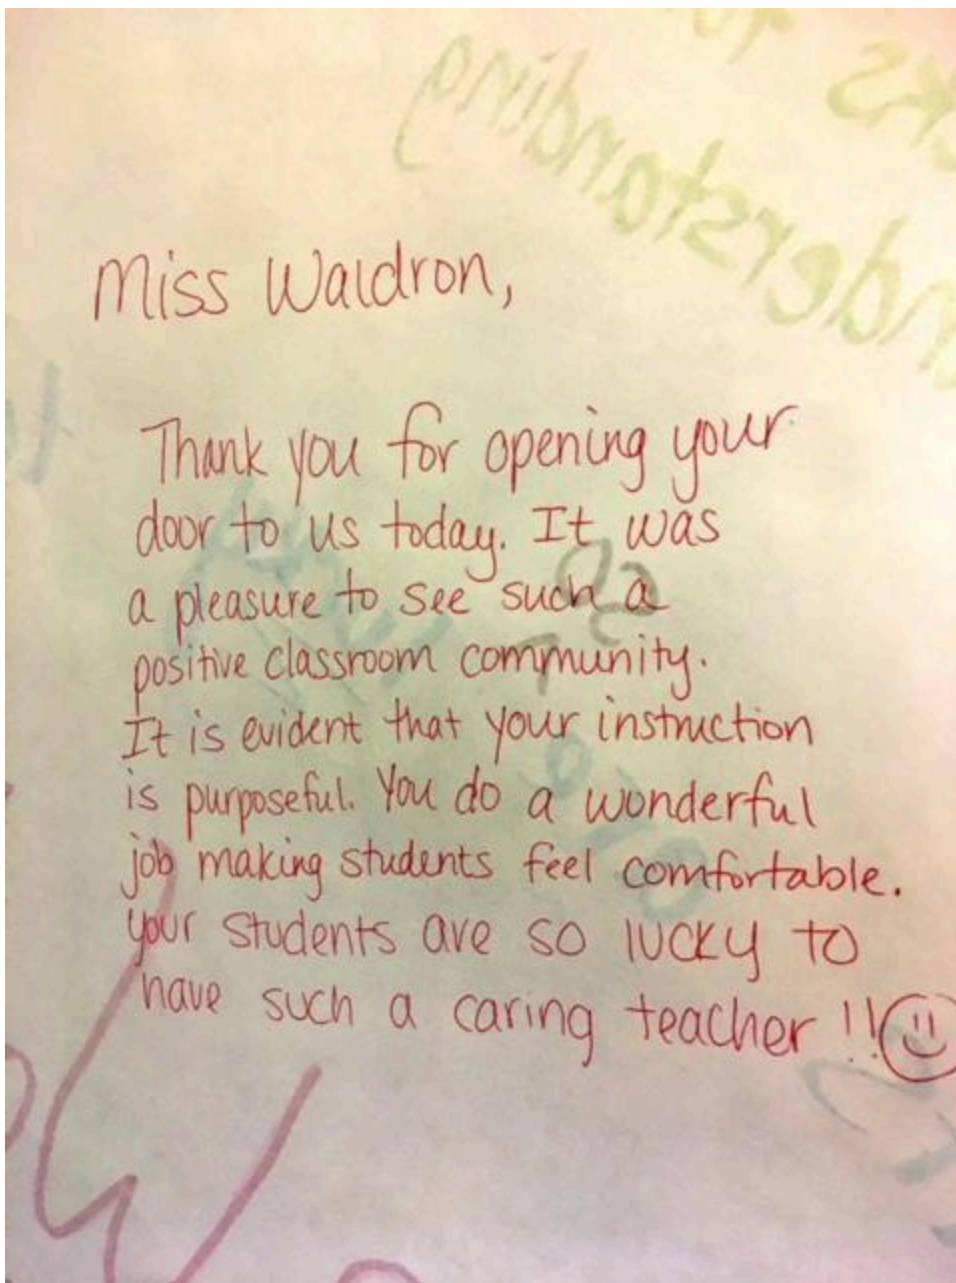 Miss Waldron,
Thank you for opening your
door to us today. It was
a pleasure to see such a
positive classroom community.
It is evident that your instruction
is purposeful. You do a wonderful
job making students feel comfortable.
Your students are so lucky to
have such a caring teacher!!